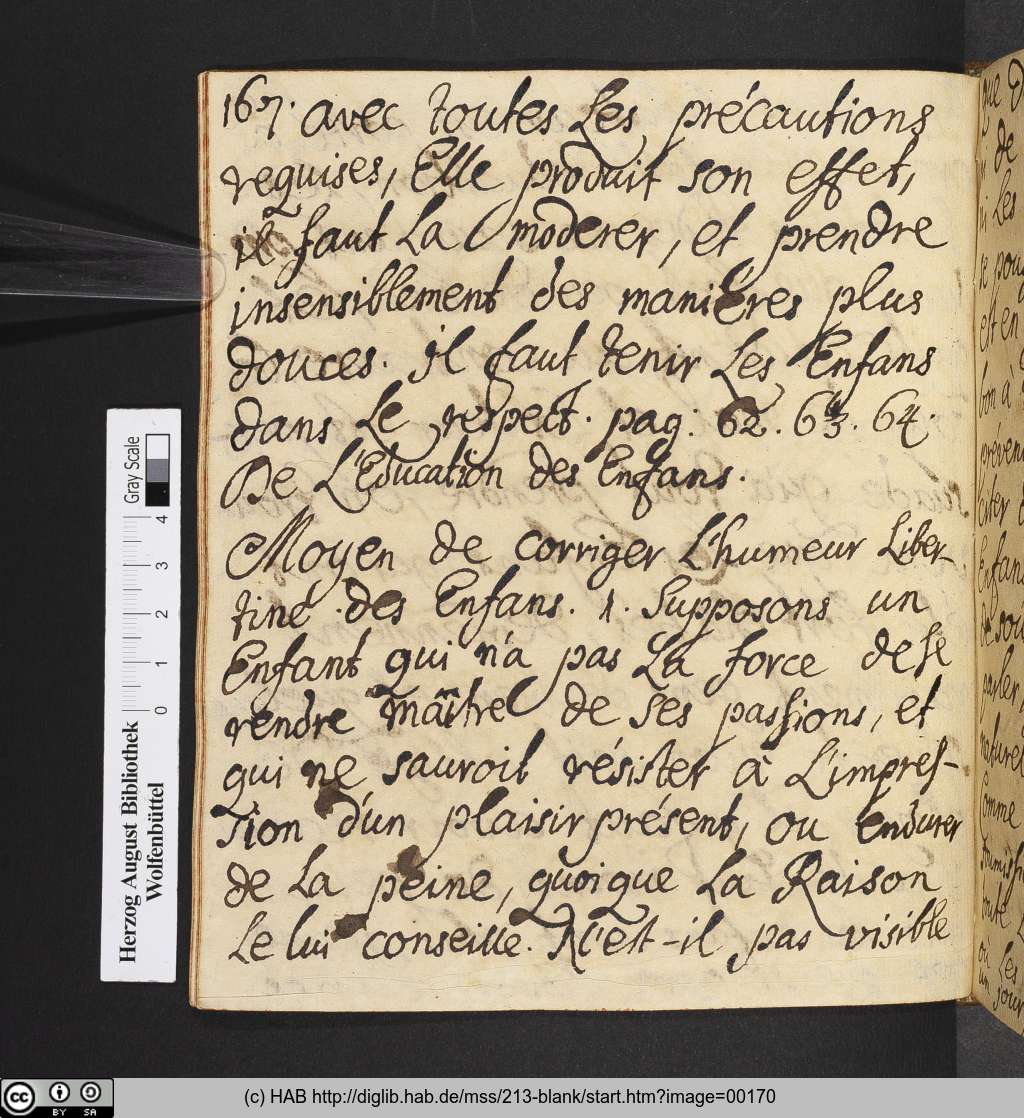 167. avec toutes Les précautions
requises, Elle produit son effet,
il faut La moderer, et prendre
insensiblement des manières plus
douces. il faut tenir Les Enfans
dans Le respect. pag: 62. 63. 64.
De L'Education des Enfans.
Moyen de corriger L'humeur Liber-
tine des Enfans. 1. Supposons un
Enfant qui n'a pas La force de se
rendre maître de ses passions, et
qui ne sauroit résister à L'impres-
sion d'un plaisir présent, ou endurer
de La peine, quoique La Raison
Le lui conseille. N'est-il pas visible
Herzog August Bibliothek
Wolfenbüttel
0 1 2 3 4
Gray Scale
que
de
Les
est en
bon a
préven
citer
Enfans
parler,
naturel
comme
toute
ou Les
un jour
cc BY SA
(c) HAB http://diglib.hab.de/mss/213-blank/start.htm?image=00170